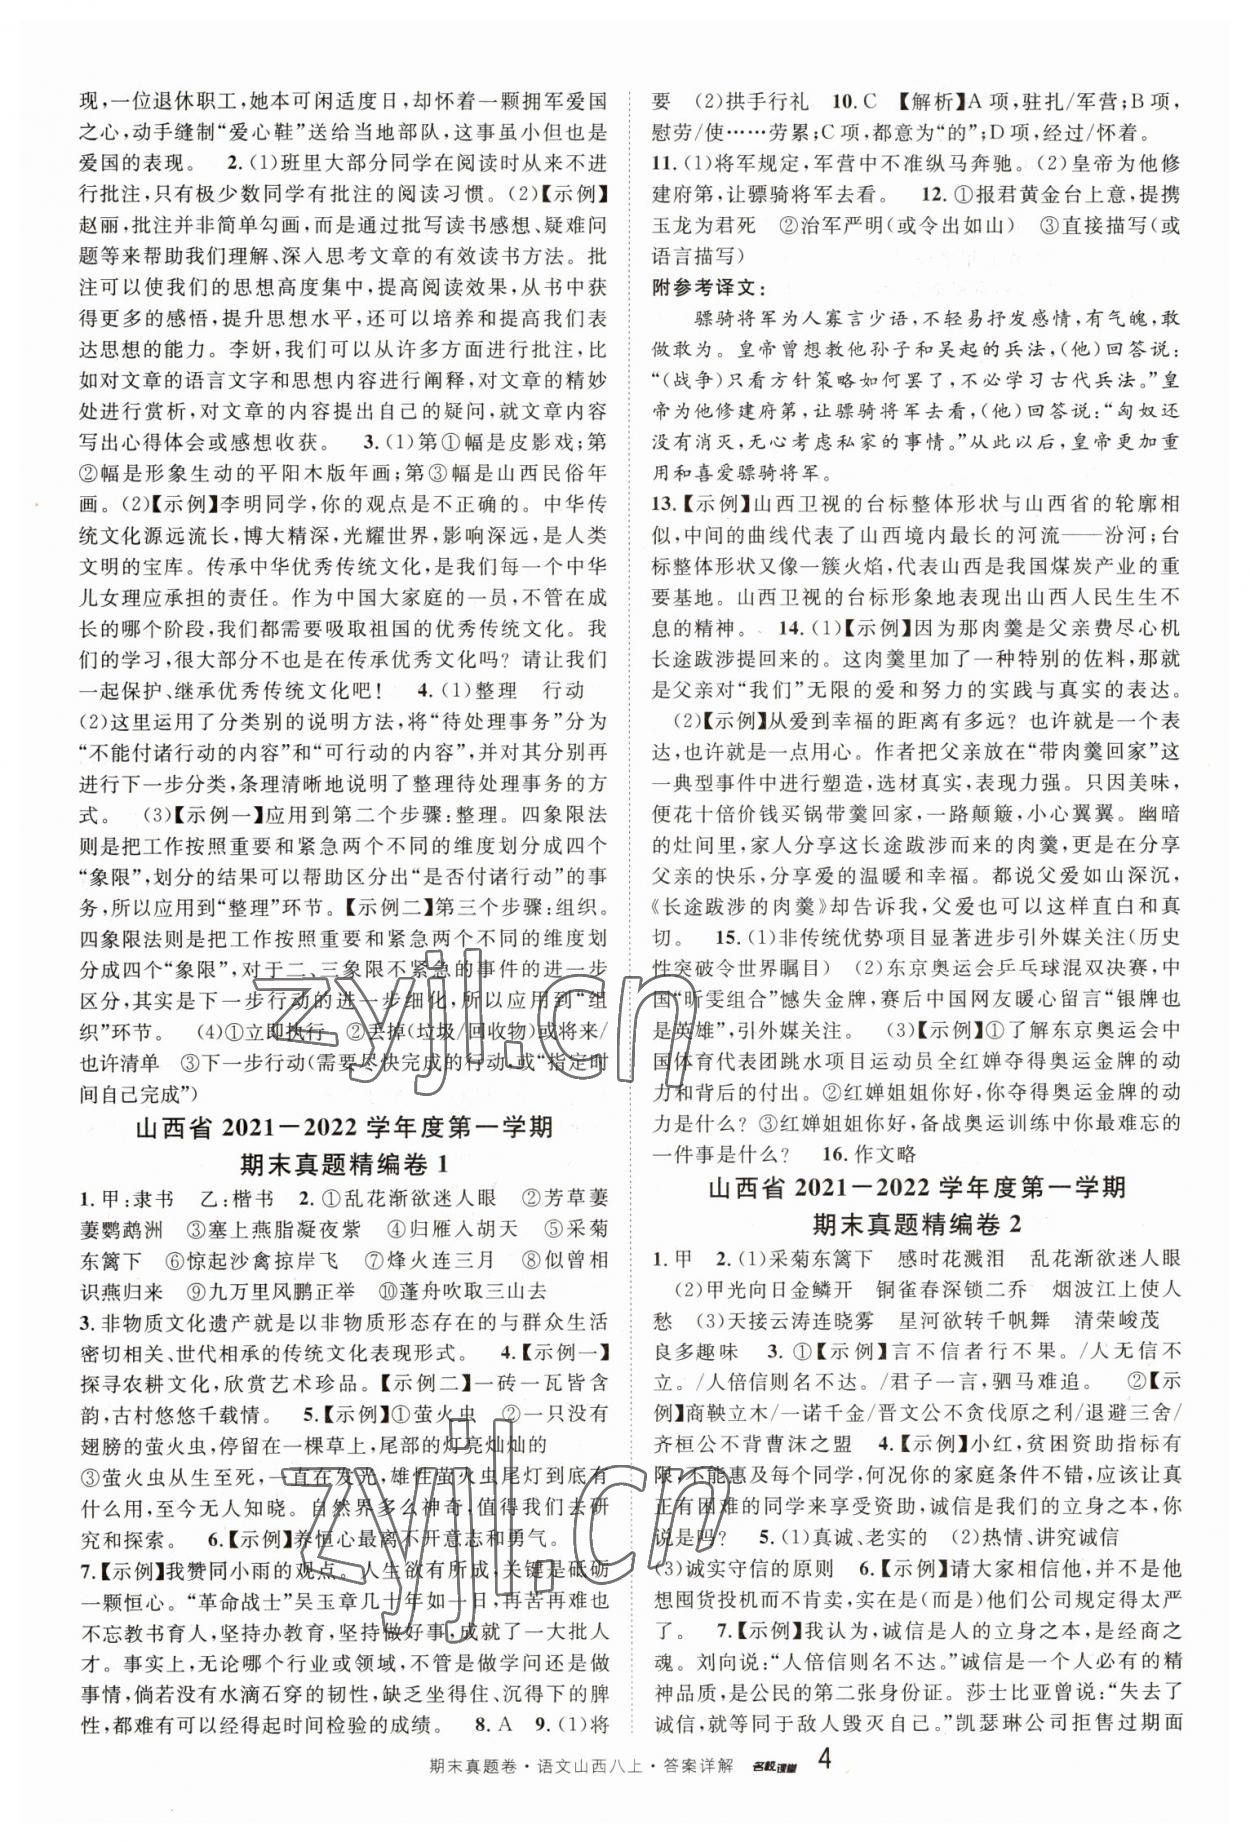 现,一位退休职工,她本可闲适度日,却怀着一颗拥军爱国
之心,动手缝制“爱心鞋”送给当地部队,这事虽小但也是
爱国的表现。 2.(1)班里大部分同学在阅读时从来不进
行批注,只有极少数同学有批注的阅读习惯。(2)【示例】
赵丽,批注并非简单勾画,而是通过批写读书感想、疑难问
题等来帮助我们理解、深入思考文章的有效读书方法。批
注可以使我们的思想高度集中,提高阅读效果,从书中获
得更多的感悟,提升思想水平,还可以培养和提高我们表
达思想的能力。李妍,我们可以从许多方面进行批注,比
如对文章的语言文字和思想内容进行阐释,对文章的精妙
处进行赏析,对文章的内容提出自己的疑问,就文章内容
写出心得体会或感想收获。 3.(1)第①幅是皮影戏;第
②幅是形象生动的平阳木版年画;第③幅是山西民俗年
画。(2)【示例】李明同学,你的观点是不正确的。中华传
统文化源远流长,博大精深,光耀世界,影响深远,是人类
文明的宝库。传承中华优秀传统文化,是我们每一个中华
儿女理应承担的责任。作为中国大家庭的一员,不管在成
长的哪个阶段,我们都需要吸取祖国的优秀传统文化。我
们的学习,很大部分不也是在传承优秀文化吗?请让我们
一起保护、继承优秀传统文化吧! 4.(1)整理 行动
(2)这里运用了分类别的说明方法,将“待处理事务”分为
“不能付诸行动的内容”和“可行动的内容”,并对其分别再
进行下一步分类,条理清晰地说明了整理待处理事务的方
式。 (3)【示例一】应用到第二个步骤:整理。四象限法
则是把工作按照重要和紧急两个不同的维度划分成四个
“象限”,划分的结果可以帮助区分出“是否付诸行动”的事
务,所以应用到“整理”环节。【示例二】第三个步骤:组织。
四象限法则是把工作按照重要和紧急两个不同的维度划
分成四个“象限”,对于二、三象限不紧急的事件的进一步
区分,其实是下一步行动的进一步细化,所以应用到“组
织”环节。 (4)①立即执行 ②丢掉(垃圾/回收物)或将来/
也许清单 ③下一步行动(需要尽快完成的行动,或“指定时
间自己完成”)
山西省 2021-2022 学年度第一学期
期末真题精编卷 1
1.甲:隶书 乙:楷书 2.①乱花渐欲迷人眼 ②芳草萋
萋鹦鹉洲 ③塞上燕脂凝夜紫 ④归雁入胡天 ⑤采菊
东篱下 ⑥惊起沙禽掠岸飞 ⑦烽火连三月 ⑧似曾相
识燕归来 ⑨九万里风鹏正举 ⑩蓬舟吹取三山去
3.非物质文化遗产就是以非物质形态存在的与群众生活
密切相关、世代相承的传统文化表现形式。 4.【示例一】
探寻农耕文化,欣赏艺术珍品。【示例二】一砖一瓦皆含
韵,古村悠悠千载情。 5.【示例】①萤火虫 ②一只没有
翅膀的萤火虫,停留在一棵草上,尾部的灯亮灿灿的
③萤火虫从生至死,一直在发光,雄性萤火虫尾灯到底有
什么用,至今无人知晓。自然界多么神奇,值得我们去研
究和探索。 6.【示例】养恒心最离不开意志和勇气。
7.【示例】我赞同小雨的观点。人生欲有所成,关键是砥砺
一颗恒心。“革命战士”吴玉章几十年如一日,再苦再难也
不忘教书育人,坚持办教育,坚持做好事,成就了一大批人
才。事实上,无论哪个行业或领域,不管是做学问还是做
事情,倘若没有水滴石穿的韧性,缺乏坐得住、沉得下的脾
性,都难有可以经得起时间检验的成绩。 8.A 9.(1)将
要 (2)拱手行礼 10.C 【解析】A项,驻扎/军营;B项,
慰劳/使……劳累;C项,都意为“的”;D项,经过/怀着。
11.(1)将军规定,军营中不准纵马奔驰。(2)皇帝为他修
建府第,让骠骑将军去看。 12.①报君黄金台上意,提携
玉龙为君死 ②治军严明(或令出如山) ③直接描写(或
语言描写)
附参考译文:
骠骑将军为人寡言少语,不轻易抒发感情,有气魄,敢
做敢为。皇帝曾想教他孙子和吴起的兵法,(他)回答说:
“(战争)只看方针策略如何罢了,不必学习古代兵法。”皇
帝为他修建府第,让骠骑将军去看,(他)回答说:“匈奴还
没有消灭,无心考虑私家的事情。”从此以后,皇帝更加重
用和喜爱骠骑将军。
13.【示例】山西卫视的台标整体形状与山西省的轮廓相
似,中间的曲线代表了山西境内最长的河流——汾河;台
标整体形状又像一簇火焰,代表山西是我国煤炭产业的重
要基地。山西卫视的台标形象地表现出山西人民生生不
息的精神。 14.(1)【示例】因为那肉羹是父亲费尽心机
长途跋涉提回来的。这肉羹里加了一种特别的佐料,那就
是父亲对“我们”无限的爱和努力的实践与真实的表达。
(2)【示例】从爱到幸福的距离有多远?也许就是一个表
达,也许就是一点用心。作者把父亲放在“带肉羹回家”这
一典型事件中进行塑造,选材真实,表现力强。只因美味,
便花十倍价钱买锅带羹回家,一路颠簸,小心翼翼。幽暗
的灶间里,家人分享这长途跋涉而来的肉羹,更是在分享
父亲的快乐,分享爱的温暖和幸福。都说父爱如山深沉,
《长途跋涉的肉羹》却告诉我,父爱也可以这样直白和真
切。 15.(1)非传统优势项目显著进步引外媒关注(历史
性突破令世界瞩目) (2)东京奥运会乒乓球混双决赛,中
国“昕雯组合”憾失金牌,赛后中国网友暖心留言“银牌也
是英雄”,引外媒关注。 (3)【示例】①了解东京奥运会中
国体育代表团跳水项目运动员全红婵夺得奥运金牌的动
力和背后的付出。②红婵姐姐你好,你夺得奥运金牌的动
力是什么?③红婵姐姐你好,备战奥运训练中你最难忘的
一件事是什么? 16.作文略
山西省 2021-2022 学年度第一学期
期末真题精编卷 2
1.甲 2.(1)采菊东篱下 感时花溅泪 乱花渐欲迷人眼
(2)甲光向日金鳞开 铜雀春深锁二乔 烟波江上使人
愁 (3)天接云涛连晓雾 星河欲转千帆舞 清荣峻茂
良多趣味 3.①【示例】言不信者行不果。/人无信不
立。/人倍信则名不达。/君子一言,驷马难追。 ②【示
例】商鞅立木/一诺千金/晋文公不贪伐原之利/退避三舍/
齐桓公不背曹沫之盟 4.【示例】小红,贫困资助指标有
限,不能惠及每个同学,何况你的家庭条件不错,应该让真
正有困难的同学来享受资助,诚信是我们的立身之本,你
说是吗? 5.(1)真诚、老实的 (2)热情、讲究诚信
(3)诚实守信的原则 6.【示例】请大家相信他,并不是他
想囤货投机而不肯卖,实在是(而是)他们公司规定得太严
了。 7.【示例】我认为,诚信是人的立身之本,是经商之
魂。刘向说:“人倍信则名不达。”诚信是一个人必有的精
神品质,是公民的第二张身份证。莎士比亚曾说:“失去了
诚信,就等同于敌人毁灭自己。”凯瑟琳公司拒售过期面
zyjl.cn
zyjl.cn
期末真题卷·语文山西八上·答案详解 名校课堂 4